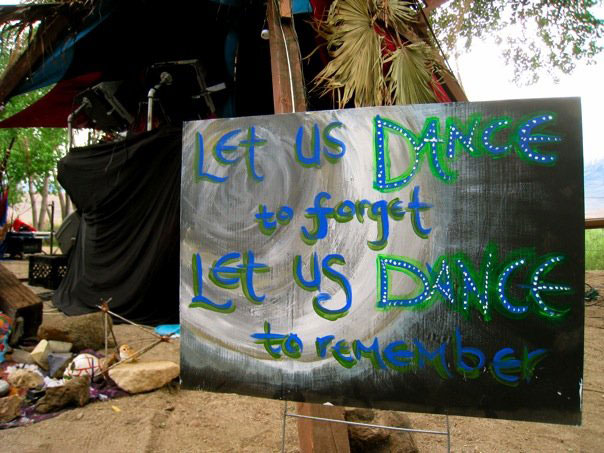 Let us DANCE
to forget
Let us DANCE
to remember